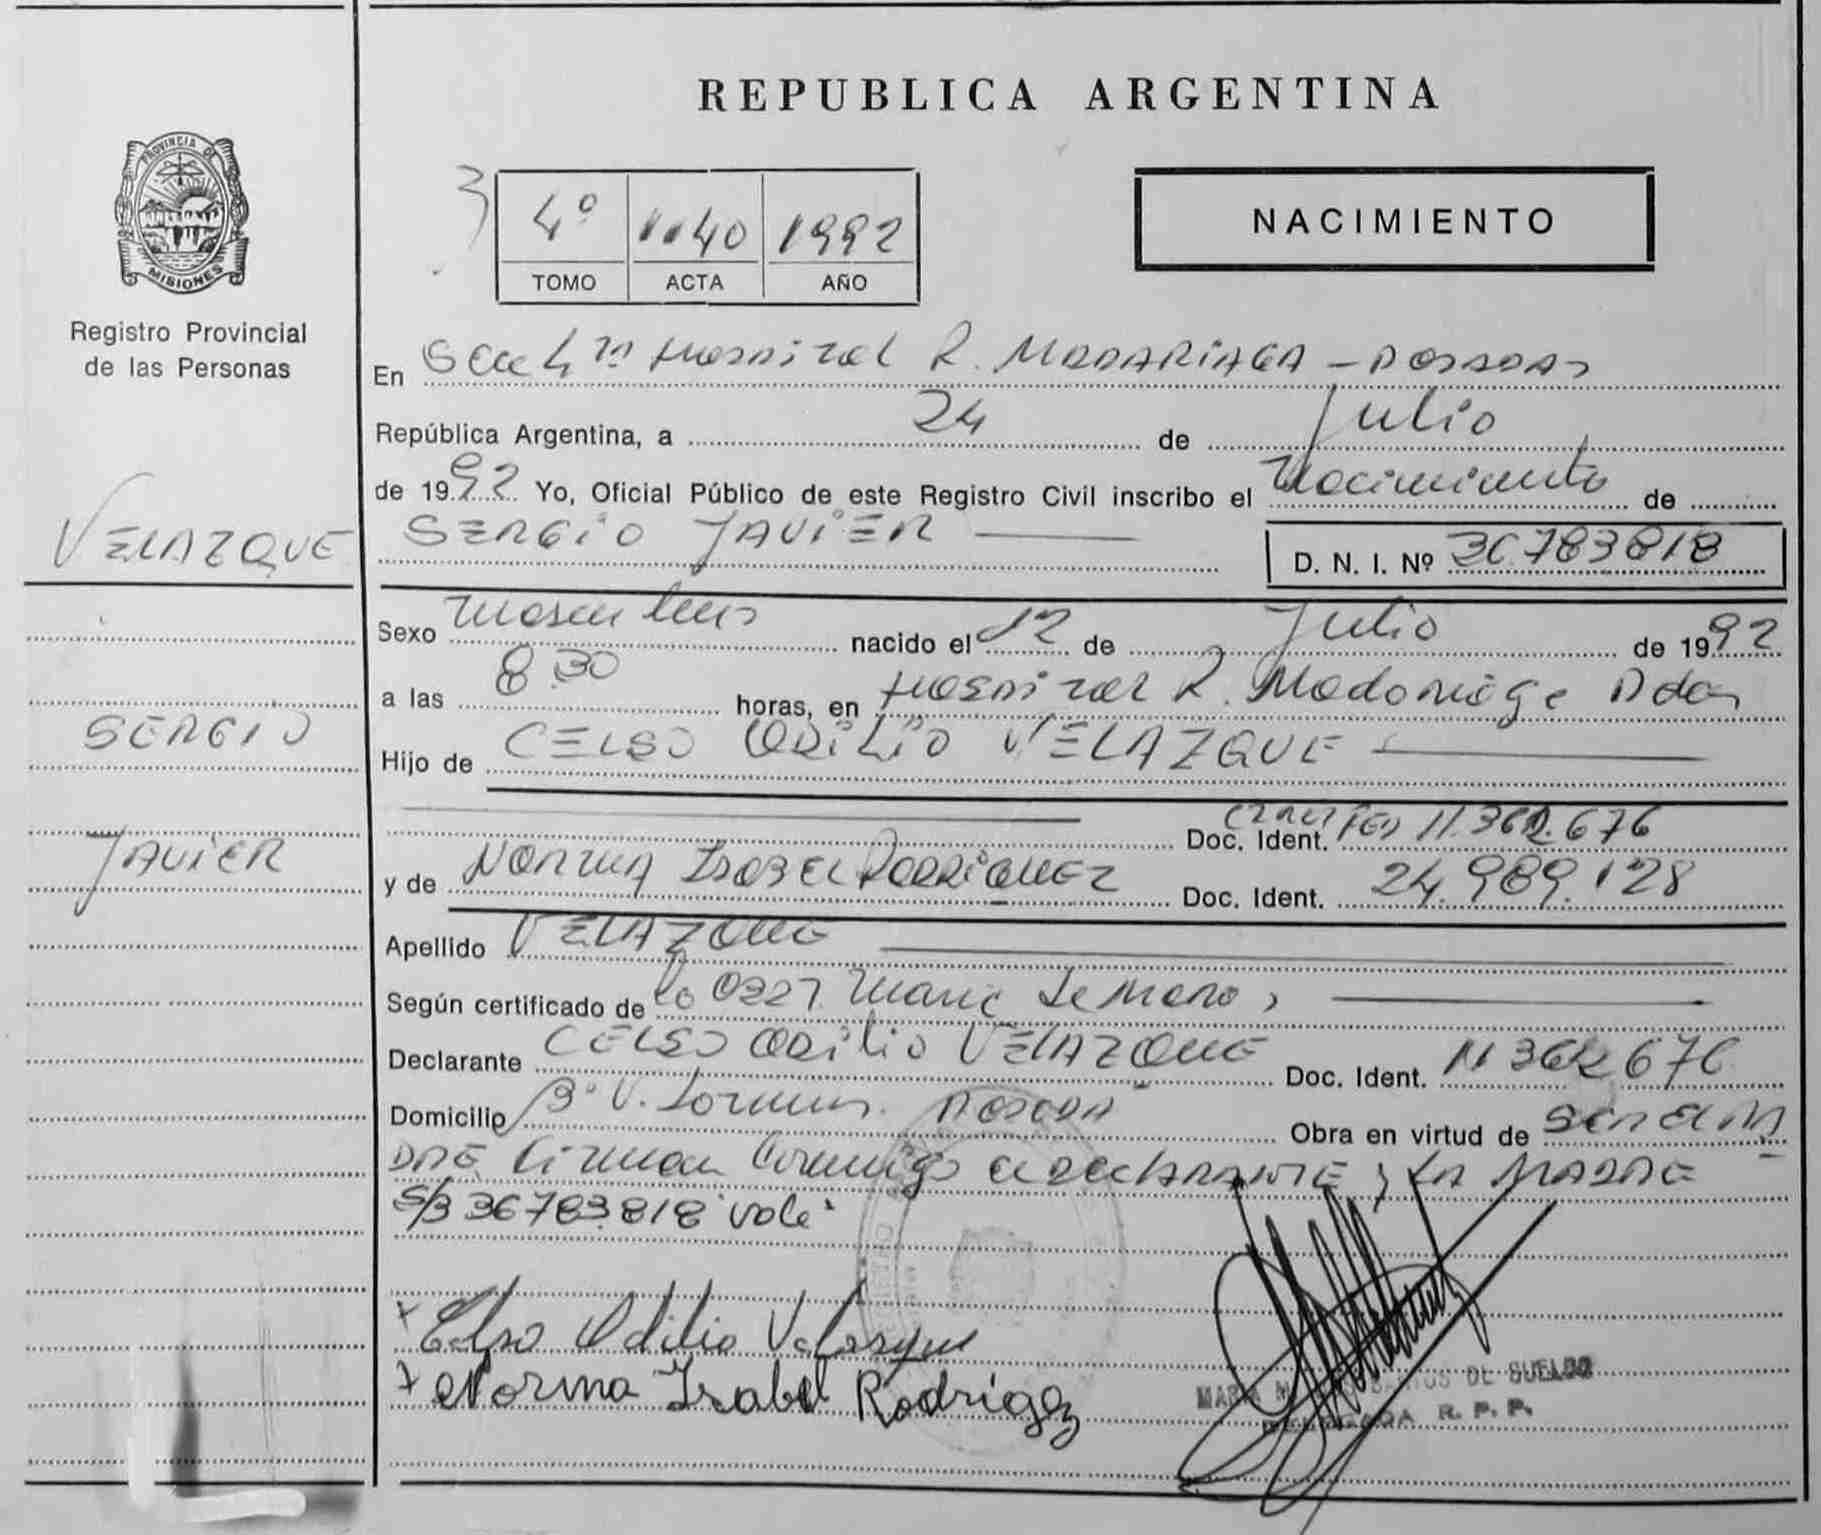 REPUBLICA ARGENTINA
PROVINCIA DE
MISIONES
Registro Provincial
de las Personas
3
4º 1140 1992
TOMO ACTA AÑO
NACIMIENTO
En Secc 4ta Hospital R. MADARIAGA - POSADAS
República Argentina, a 24 de Julio
de 1992 Yo, Oficial Público de este Registro Civil inscribo el Nacimiento de
SERGIO JAVIER
D. N. I. Nº 36783818
VELAZQUE
SERGIO
JAVIER
Sexo Masculino nacido el 12 de Julio de 1992
a las 8.30 horas, en Hospital R. Madariaga Pdas
Hijo de CELSO ODILIO VELAZQUE
Doc. Ident. 11.362.676
y de NORMA ISABEL RODRIGUEZ Doc. Ident. 24.989.128
Apellido VELAZQUE
Según certificado de la Obst. Maria
Declarante CELSO ODILIO VELAZQUE Doc. Ident. 11 362 676
Domicilio Bº V. POSADAS Obra en virtud de SER EL PA
DRE Firman Conmigo el DECLARANTE y LA MADRE
S/B 36783.818 Vale
Celso Odilio Velasque
Norma Isabel Rodrigez
DE SUELDO
DELEGADA R. P. P.